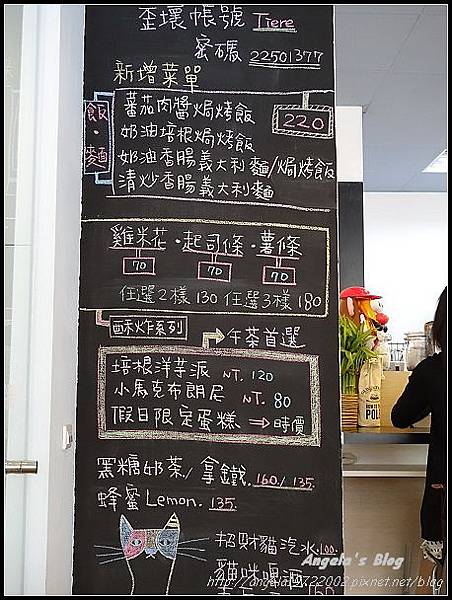 歪壞帳號 Tiere
密碼 22501377
新增菜單
飯·麵
蕃茄肉醬焗烤飯
奶油培根焗烤飯
220
奶油香腸義大利麵/焗烤飯
清炒香腸義大利麵
雞米花·起司條·薯條
70 70 70
任選2樣 130 任選3樣 180
酥炸系列
午茶首選
培根洋芋派 NT. 120
小馬克布朗尼 NT. 80
假日限定蛋糕 → 時價
黑糖奶茶/拿鐵 160/135.
蜂蜜Lemon. 135.
招財貓汽水 100
貓咪啤酒
160
Angela's Blog
http://angela0722002.pixnet.net/blog